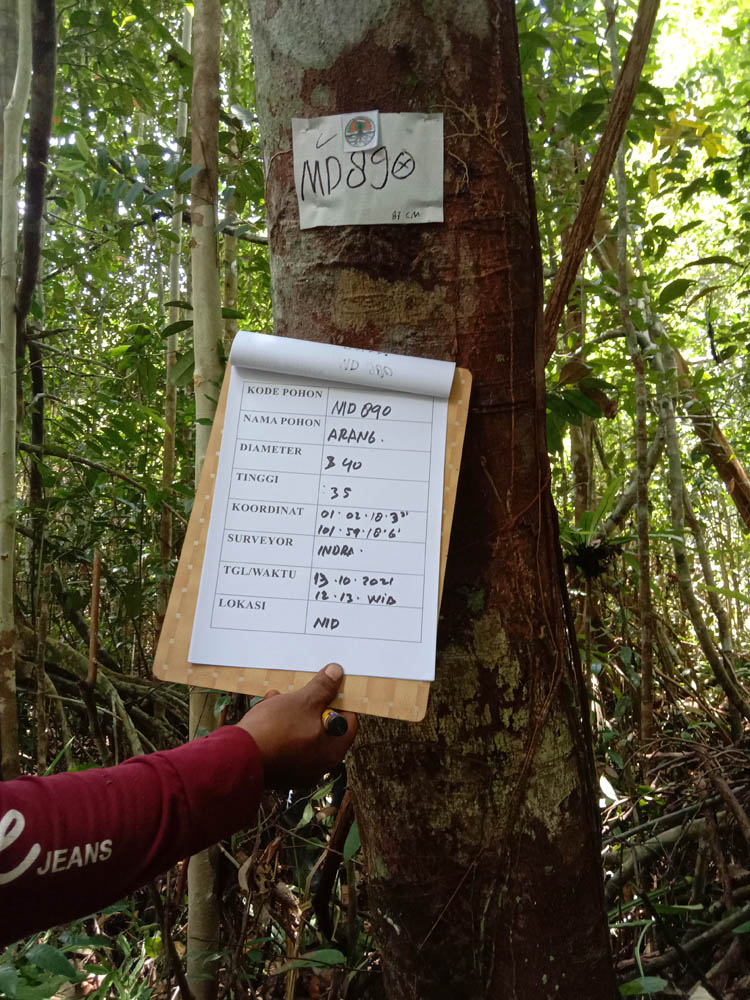 MD890
87 CM
KODE POHON MD 890
NAMA POHON ARANG.
DIAMETER 340
TINGGI : 35
KOORDINAT 01·02·18·3"
101·59·18·6'
SURVEYOR INDRA·
TGL/WAKTU 13·10·2021
12·13·WIB
LOKASI NID
JEANS